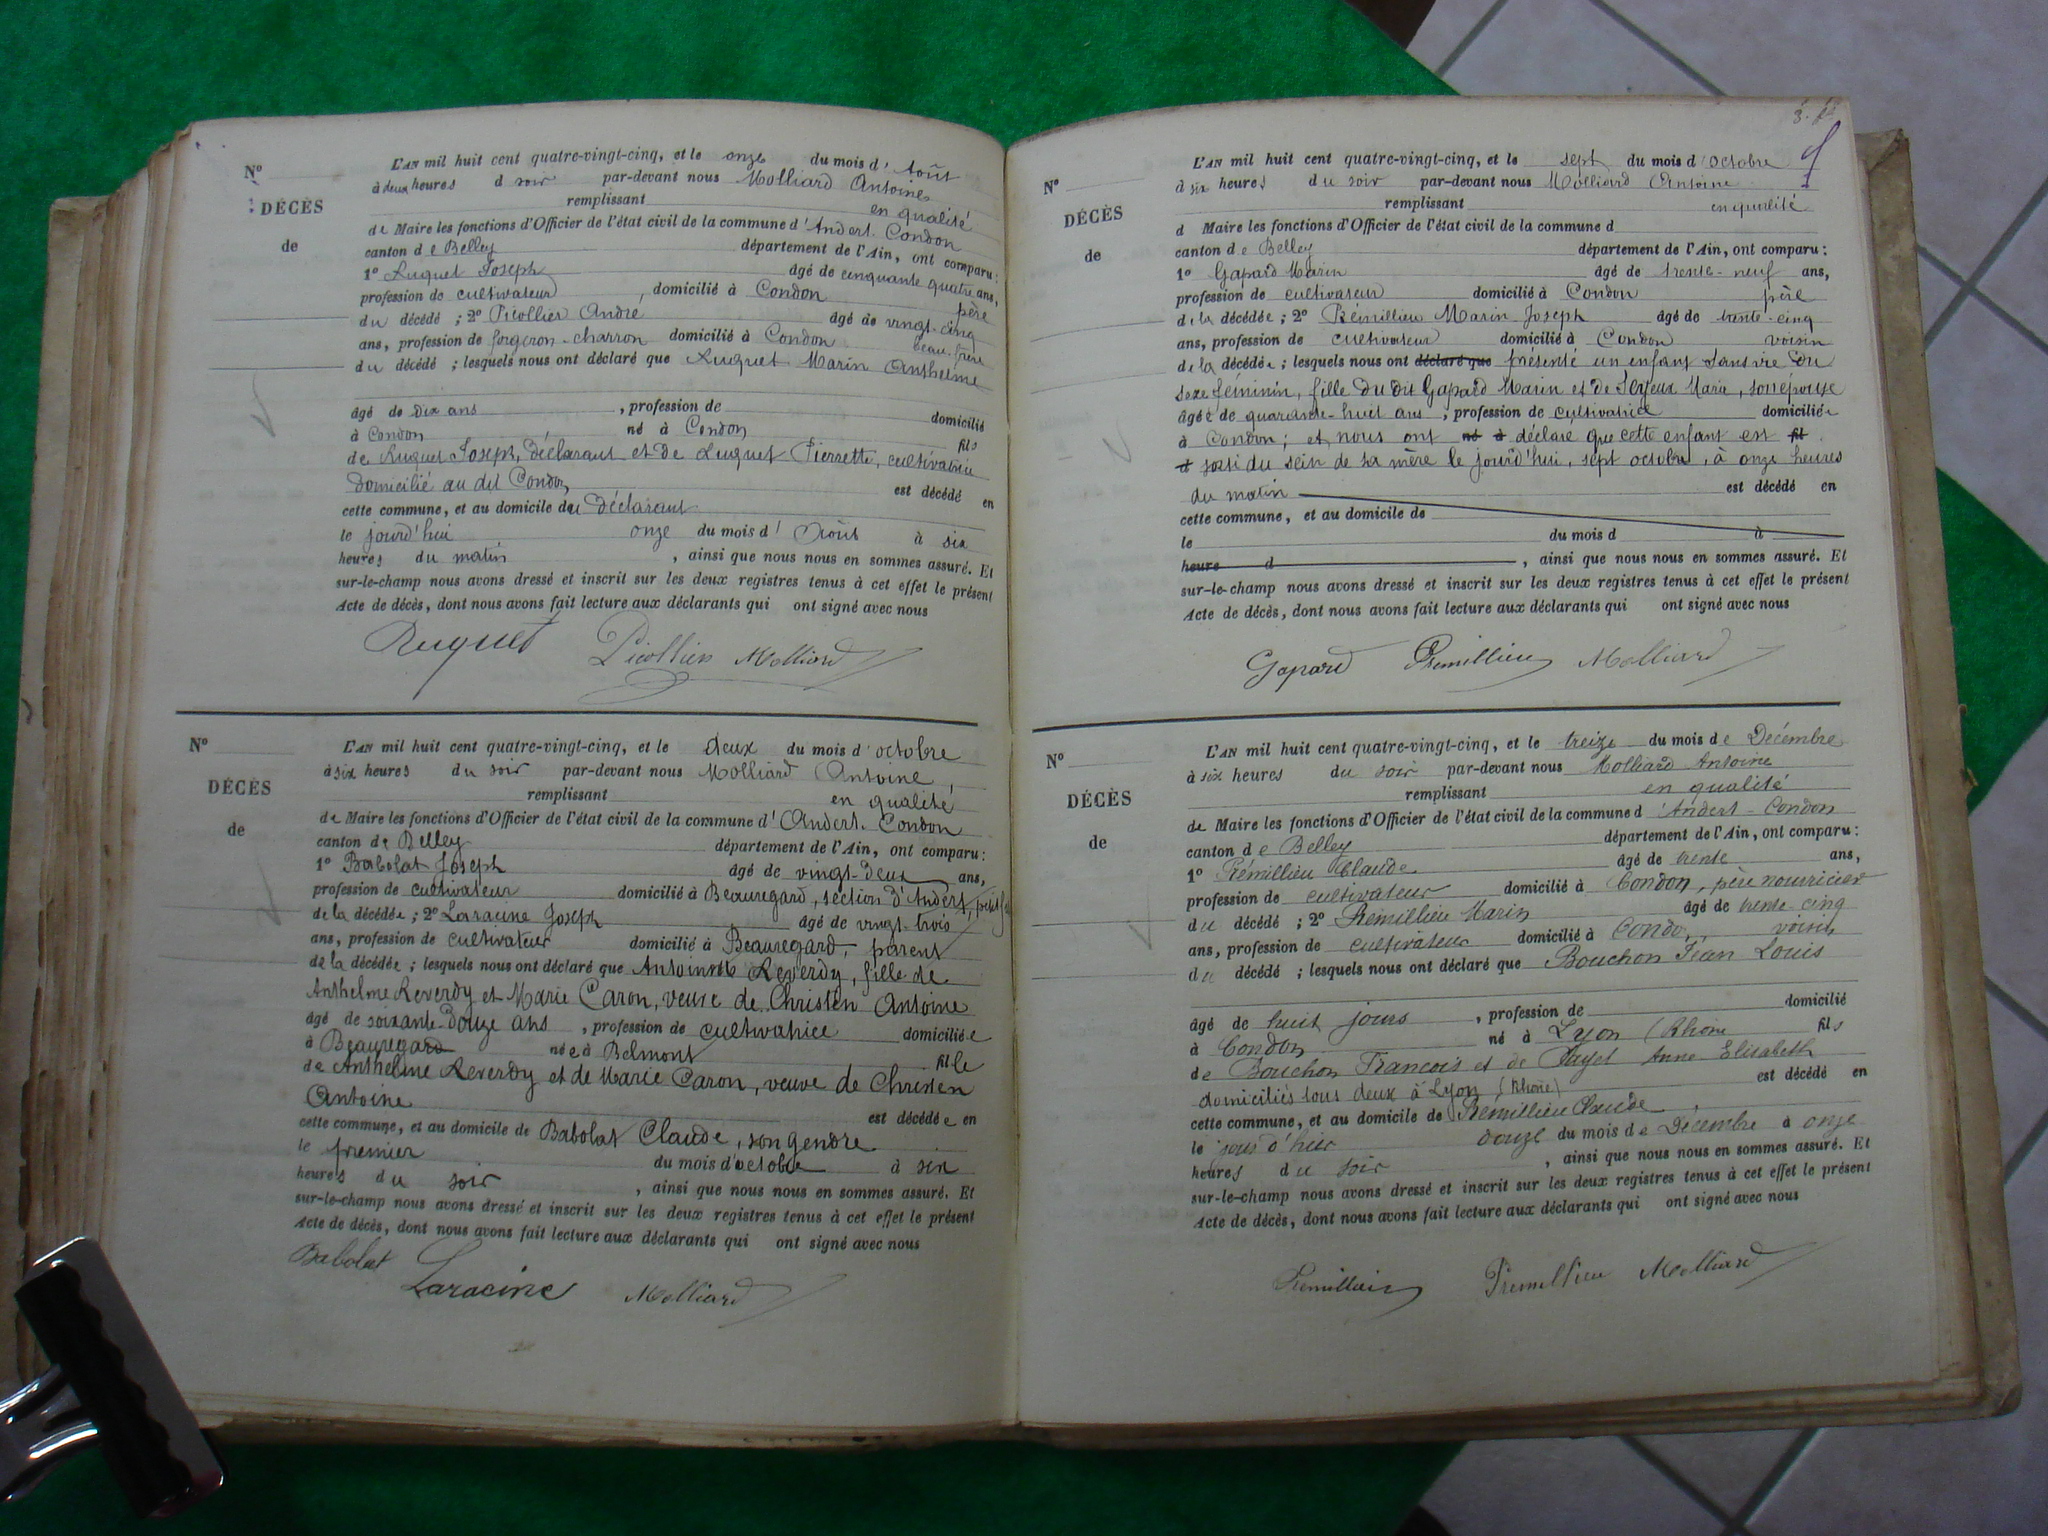 Nº
DÉCÈS
de
L'AN mil huit cent quatre-vingt-cinq, et le onze du mois d'Août
à deux heures d soir par-devant nous Molliard Antoine
remplissant en qualité
de Maire les fonctions d'Officier de l'état civil de la commune d'Andert-Condon
canton de Belley département de l'Ain, ont comparu :
1º Ruguet Joseph âgé de cinquante quatre ans,
profession de cultivateur, domicilié à Condon père
du décédé ; 2º Picollier André âgé de vingt-cinq
ans, profession de forgeron-charron domicilié à Condon beau-frère
du décédé ; lesquels nous ont déclaré que Ruguet Marin Anthelme
âgé de dix ans, profession de domicilié
à Condon né à Condon fils
de Ruguet Joseph, déclarant et de Luquet Pierrette, cultivatrice
domicilié au dit Condon est décédé en
cette commune, et au domicile du déclarant
le jourd'hui onze du mois d'Août à six
heures du matin, ainsi que nous nous en sommes assuré. Et
sur-le-champ nous avons dressé et inscrit sur les deux registres tenus à cet effet le présent
Acte de décès, dont nous avons fait lecture aux déclarants qui ont signé avec nous
Ruguet Picollier Molliard
Nº
DÉCÈS
de
L'AN mil huit cent quatre-vingt-cinq, et le deux du mois d'octobre
à six heures du soir par-devant nous Molliard Antoine
remplissant en qualité
de Maire les fonctions d'Officier de l'état civil de la commune d'Andert-Condon
canton de Belley département de l'Ain, ont comparu :
1º Babolat Joseph âgé de vingt-deux ans,
profession de cultivateur domicilié à Beauregard, section d'Andert, petit fils
de la décédée ; 2º Laracine Joseph âgé de vingt-trois
ans, profession de cultivateur domicilié à Beauregard, parent
de la décédée ; lesquels nous ont déclaré que Antoinette Reverdy, fille de
Anthelme Reverdy et Marie Caron, veuve de Christen Antoine
âgé de soixante-douze ans, profession de cultivatrice domiciliée
à Beauregard née à Belmont fille
de Anthelme Reverdy et de Marie Caron, veuve de Christen
Antoine est décédée en
cette commune, et au domicile de Babolat Claude, son gendre
le premier du mois d'octobre à six
heures du soir, ainsi que nous nous en sommes assuré. Et
sur-le-champ nous avons dressé et inscrit sur les deux registres tenus à cet effet le présent
Acte de décès, dont nous avons fait lecture aux déclarants qui ont signé avec nous
Babolat Laracine Molliard
Nº
DÉCÈS
de
L'AN mil huit cent quatre-vingt-cinq, et le sept du mois d'octobre
à six heures du soir par-devant nous Molliard Antoine
remplissant en qualité
d Maire les fonctions d'Officier de l'état civil de la commune d
canton de Belley département de l'Ain, ont comparu :
1º Gapard Marin âgé de trente-neuf ans,
profession de cultivateur domicilié à Condon père
de la décédée ; 2º Rémillieu Marin Joseph âgé de trente-cinq
ans, profession de cultivateur domicilié à Condon voisin
de la décédée ; lesquels nous ont déclaré que présenté un enfant sans vie du
sexe féminin, fille du dit Gapard Marin et de Marie, son épouse
âgée de quarante-huit ans, profession de cultivatrice domiciliée
à Condon ; et nous ont né à déclaré que cette enfant est fil
d sorti du sein de sa mère le jourd'hui, sept octobre, à onze heures
du matin est décédé en
cette commune, et au domicile de
le du mois d à
heure d, ainsi que nous nous en sommes assuré. Et
sur-le-champ nous avons dressé et inscrit sur les deux registres tenus à cet effet le présent
Acte de décès, dont nous avons fait lecture aux déclarants qui ont signé avec nous
Gapard Prémillieu Molliard
Nº
DÉCÈS
de
L'AN mil huit cent quatre-vingt-cinq, et le treize du mois de Décembre
à six heures du soir par-devant nous Molliard Antoine
remplissant en qualité
de Maire les fonctions d'Officier de l'état civil de la commune d'Andert-Condon
canton de Belley département de l'Ain, ont comparu :
1º Prémillieu Claude âgé de trente ans,
profession de cultivateur domicilié à Condon, père nourricier
du décédé ; 2º Rémillieu Marin âgé de trente-cinq
ans, profession de cultivateur domicilié à Condon, voisin
du décédé ; lesquels nous ont déclaré que Bouchon Jean Louis
âgé de huit jours, profession de domicilié
à Condon né à Lyon (Rhône fils
de Bouchon François et de Payet Anne Elisabeth
domiciliés tous deux à Lyon (Rhône) est décédé en
cette commune, et au domicile de Rémillieu Claude
le jour d'hier douze du mois de Décembre à onze
heures du soir, ainsi que nous nous en sommes assuré. Et
sur-le-champ nous avons dressé et inscrit sur les deux registres tenus à cet effet le présent
Acte de décès, dont nous avons fait lecture aux déclarants qui ont signé avec nous
Prémillieu Prémillieu Molliard